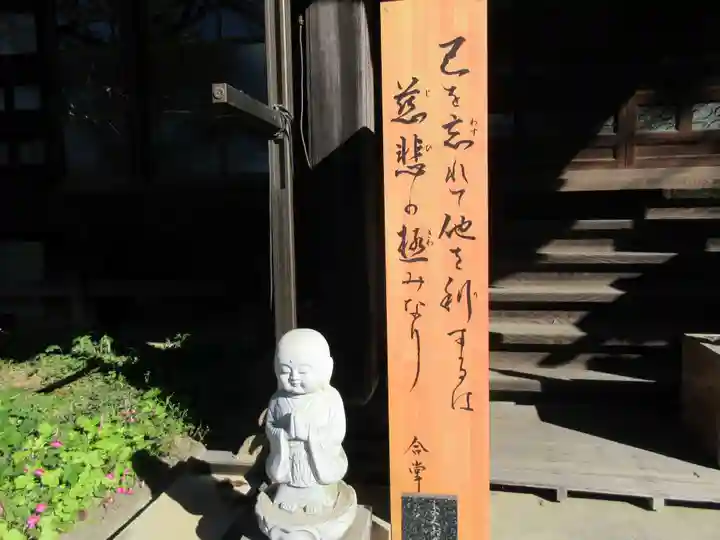 己を忘れて他を利するは
慈悲の極みなり
合掌